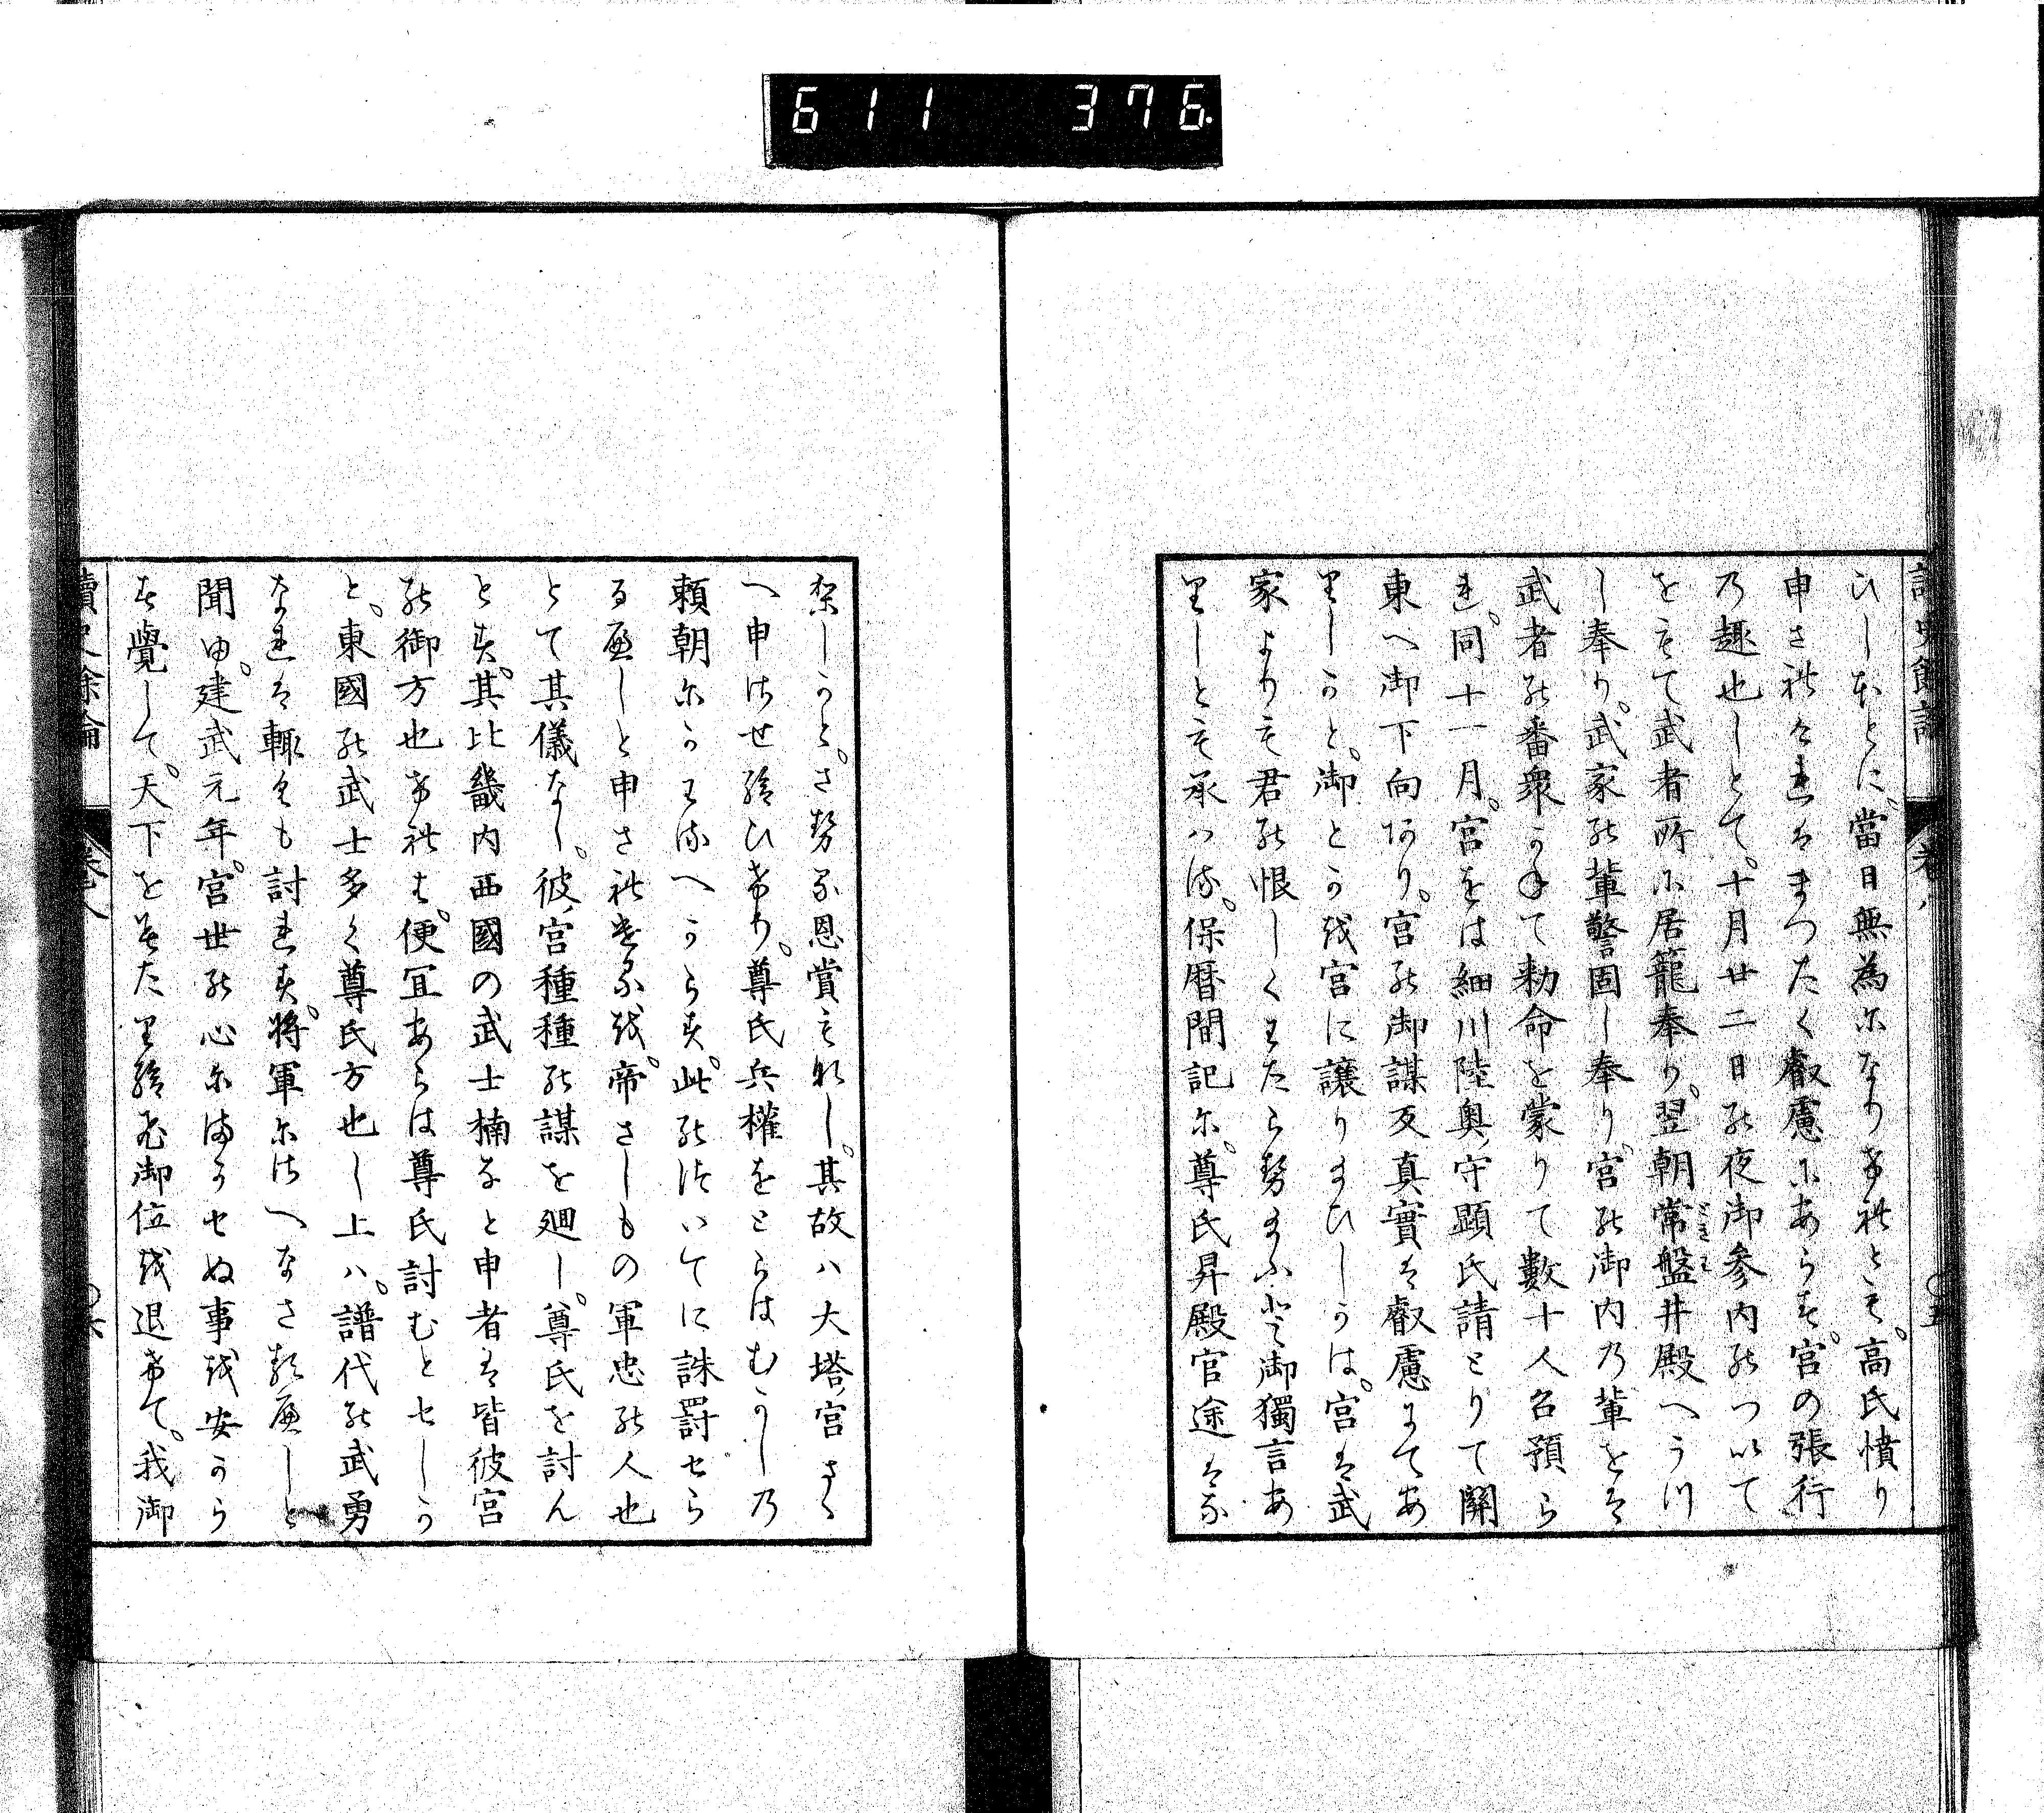 611 376
讀史餘論 卷八 ○五
ひしほとに。當日無為になりけれとも。高氏憤り
申されけれはまつたく叡慮にあらす。宮の張行
の趣也しとて。十月廿二日の夜御参内のついて
をもて武者所に居籠奉り。翌朝常盤井殿へうつ
し奉り。武家の輩警固し奉り。宮の御内の輩をは
武者の番衆かねて勅命を蒙りて數十人召預ら
れ。同十一月。宮をは細川陸奥守顕氏請とりて關
東へ御下向あり。宮の御謀反真實は叡慮にてあ
りしかと。御とかを宮に譲りまひしうは。宮は武
家よりも君の恨しくわたらせまふと御獨言あ
りしとも承はる。保暦間記に。尊氏昇殿官途はな
りしかと。させる恩賞もなし。其故ハ大塔宮さゝ
へ申させ給ひけり。尊氏兵權をとらはむかしの
頼朝にかはるへからす。此のついてに誅罰せら
るへしと申されけるを。帝さしもの軍忠の人也
とて其儀なし。彼宮種種の謀を廻し。尊氏を討ん
とす。其比畿内西國の武士楠なと申者は皆彼宮
の御方也けれは。便冝あらは尊氏討むとせしか
と。東國の武士多く尊氏方也し上ハ。譜代の武勇
なれは輙くも討れす。将軍にさへなさるへしと
聞ゆ。建武元年。宮世の心にまかせぬ事を安から
す覺して。天下をしたり給飛御位を退けて。我御
讀史餘論 卷八 ○六